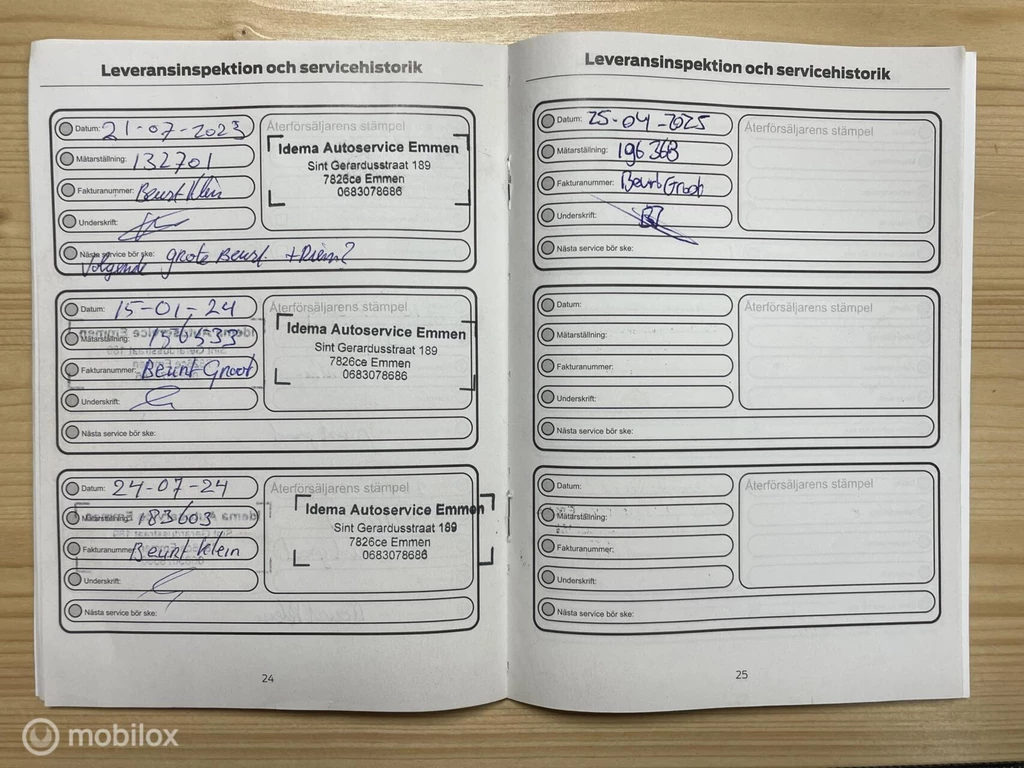 Leveransinspektion och servicehistorik
Datum: 21-07-2023
Mätarställning: 132701
Fakturanummer: Beurt klein
Underskrift:
Nästa service bör ske: Volgende grote Beurt. + Riem?
Återförsäljarens stämpel
Idema Autoservice Emmen
Sint Gerardusstraat 189
7826ce Emmen
0683078686
Datum: 15-01-24
Mätarställning: 156533
Fakturanummer: Beurt Groot
Underskrift:
Nästa service bör ske:
Återförsäljarens stämpel
Idema Autoservice Emmen
Sint Gerardusstraat 189
7826ce Emmen
0683078686
Datum: 24-07-24
Mätarställning: 183603
Fakturanummer: Beurt klein
Underskrift:
Nästa service bör ske:
Återförsäljarens stämpel
Idema Autoservice Emmen
Sint Gerardusstraat 189
7826ce Emmen
0683078686
24
Leveransinspektion och servicehistorik
Datum: 25-04-2025
Mätarställning: 196368
Fakturanummer: Beurt Groot
Underskrift:
Nästa service bör ske:
Återförsäljarens stämpel
Datum:
Mätarställning:
Fakturanummer:
Underskrift:
Nästa service bör ske:
Återförsäljarens stämpel
Datum:
Mätarställning:
Fakturanummer:
Underskrift:
Nästa service bör ske:
Återförsäljarens stämpel
25
mobilox